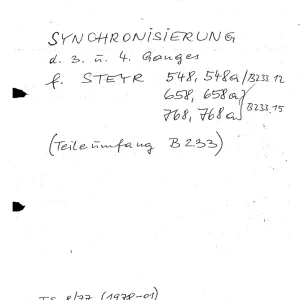 SYNCHRONISIERUNG
d. 3. u. 4. Ganges
f. STEYR 548, 548a / B233.12
658, 658a
768, 768a / B233.15
(Teileumfang B233)
TS 8/77 (1978-01)